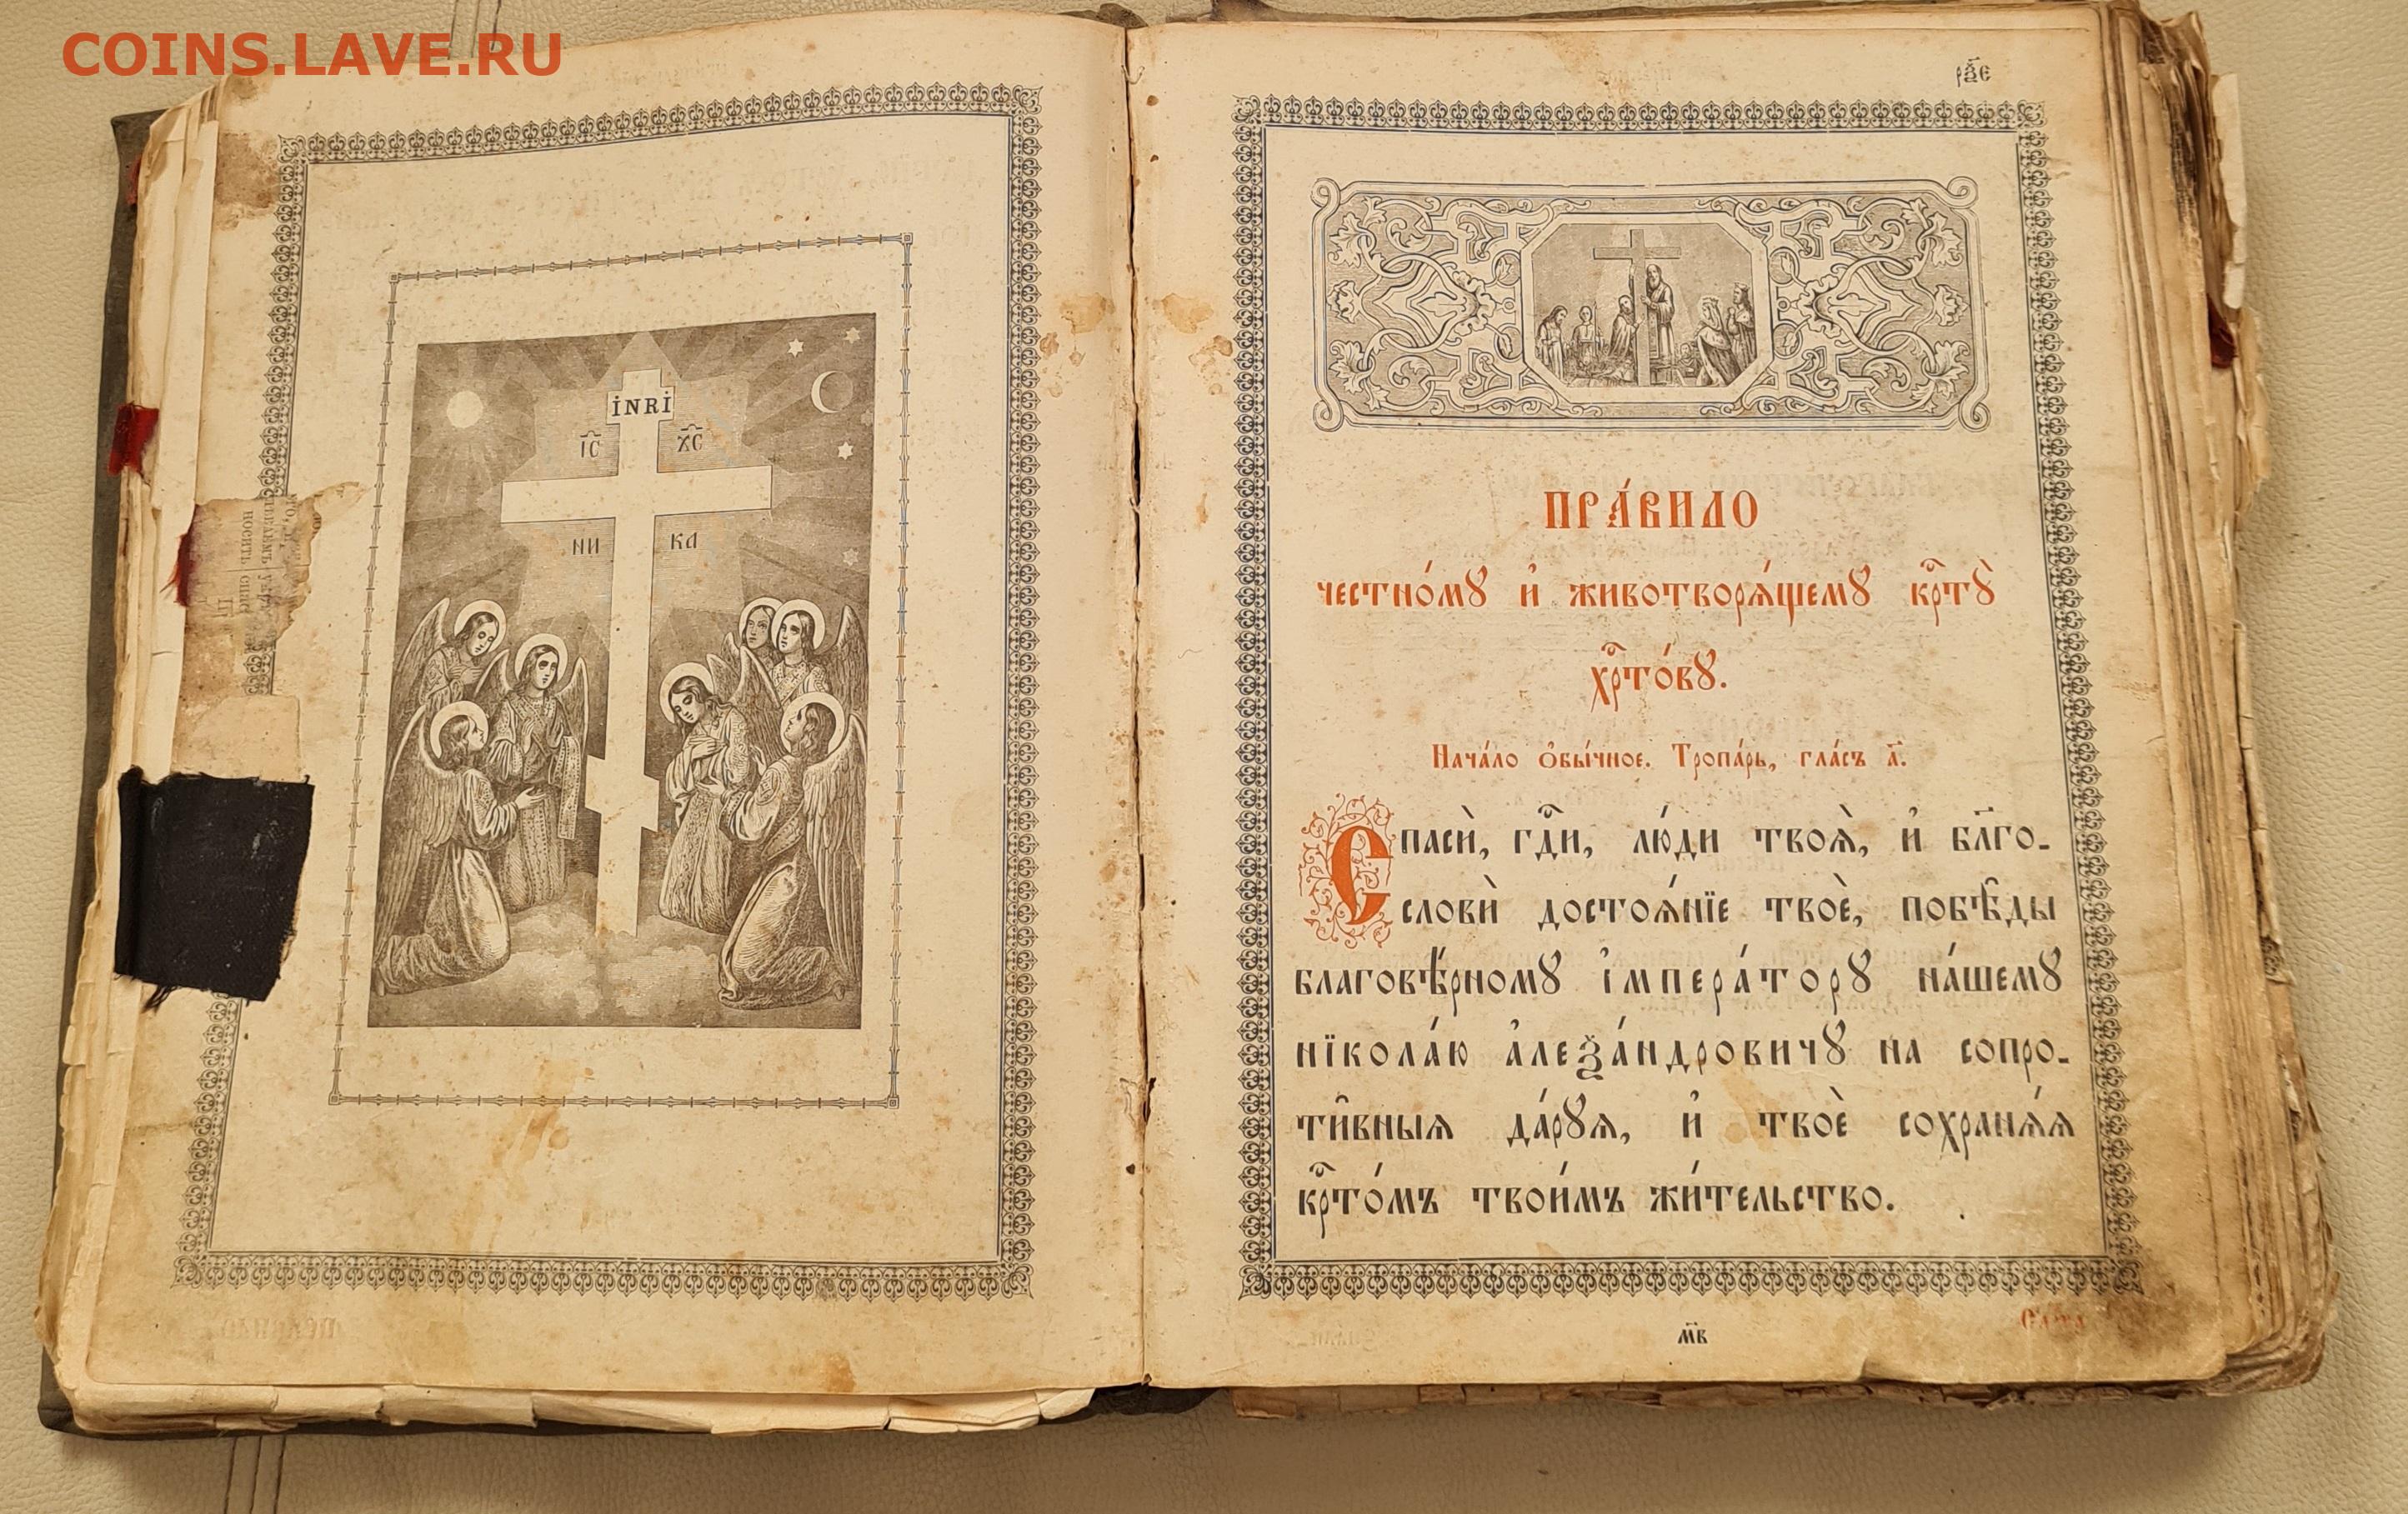 COINS.LAVE.RU
INRI
І҃С Х҃С
НИ КА
носить
рѯ҃є
ПРА́ВИЛО
честно́мꙋ и҆ животворѧ́щемꙋ крⷭ҇тꙋ̀
хрⷭ҇то́вꙋ.
Нача́ло ѻ҆бы́чное. Тропа́рь, гла́съ а҃.
Спасѝ, гдⷭ҇и, лю́ди твоѧ̑, и҆ бл҃го-
словѝ достоѧ́нїе твоѐ, побѣ̑ды
благовѣ́рномꙋ і҆мпера́торꙋ на́шемꙋ
нїкола́ю а҆леѯа́ндровичꙋ на сопро-
ти̑вныѧ да́рꙋѧ, и҆ твоѐ сохранѧ́ѧ
крⷭ҇то́мъ твои́мъ жи́тельство.
м҃в